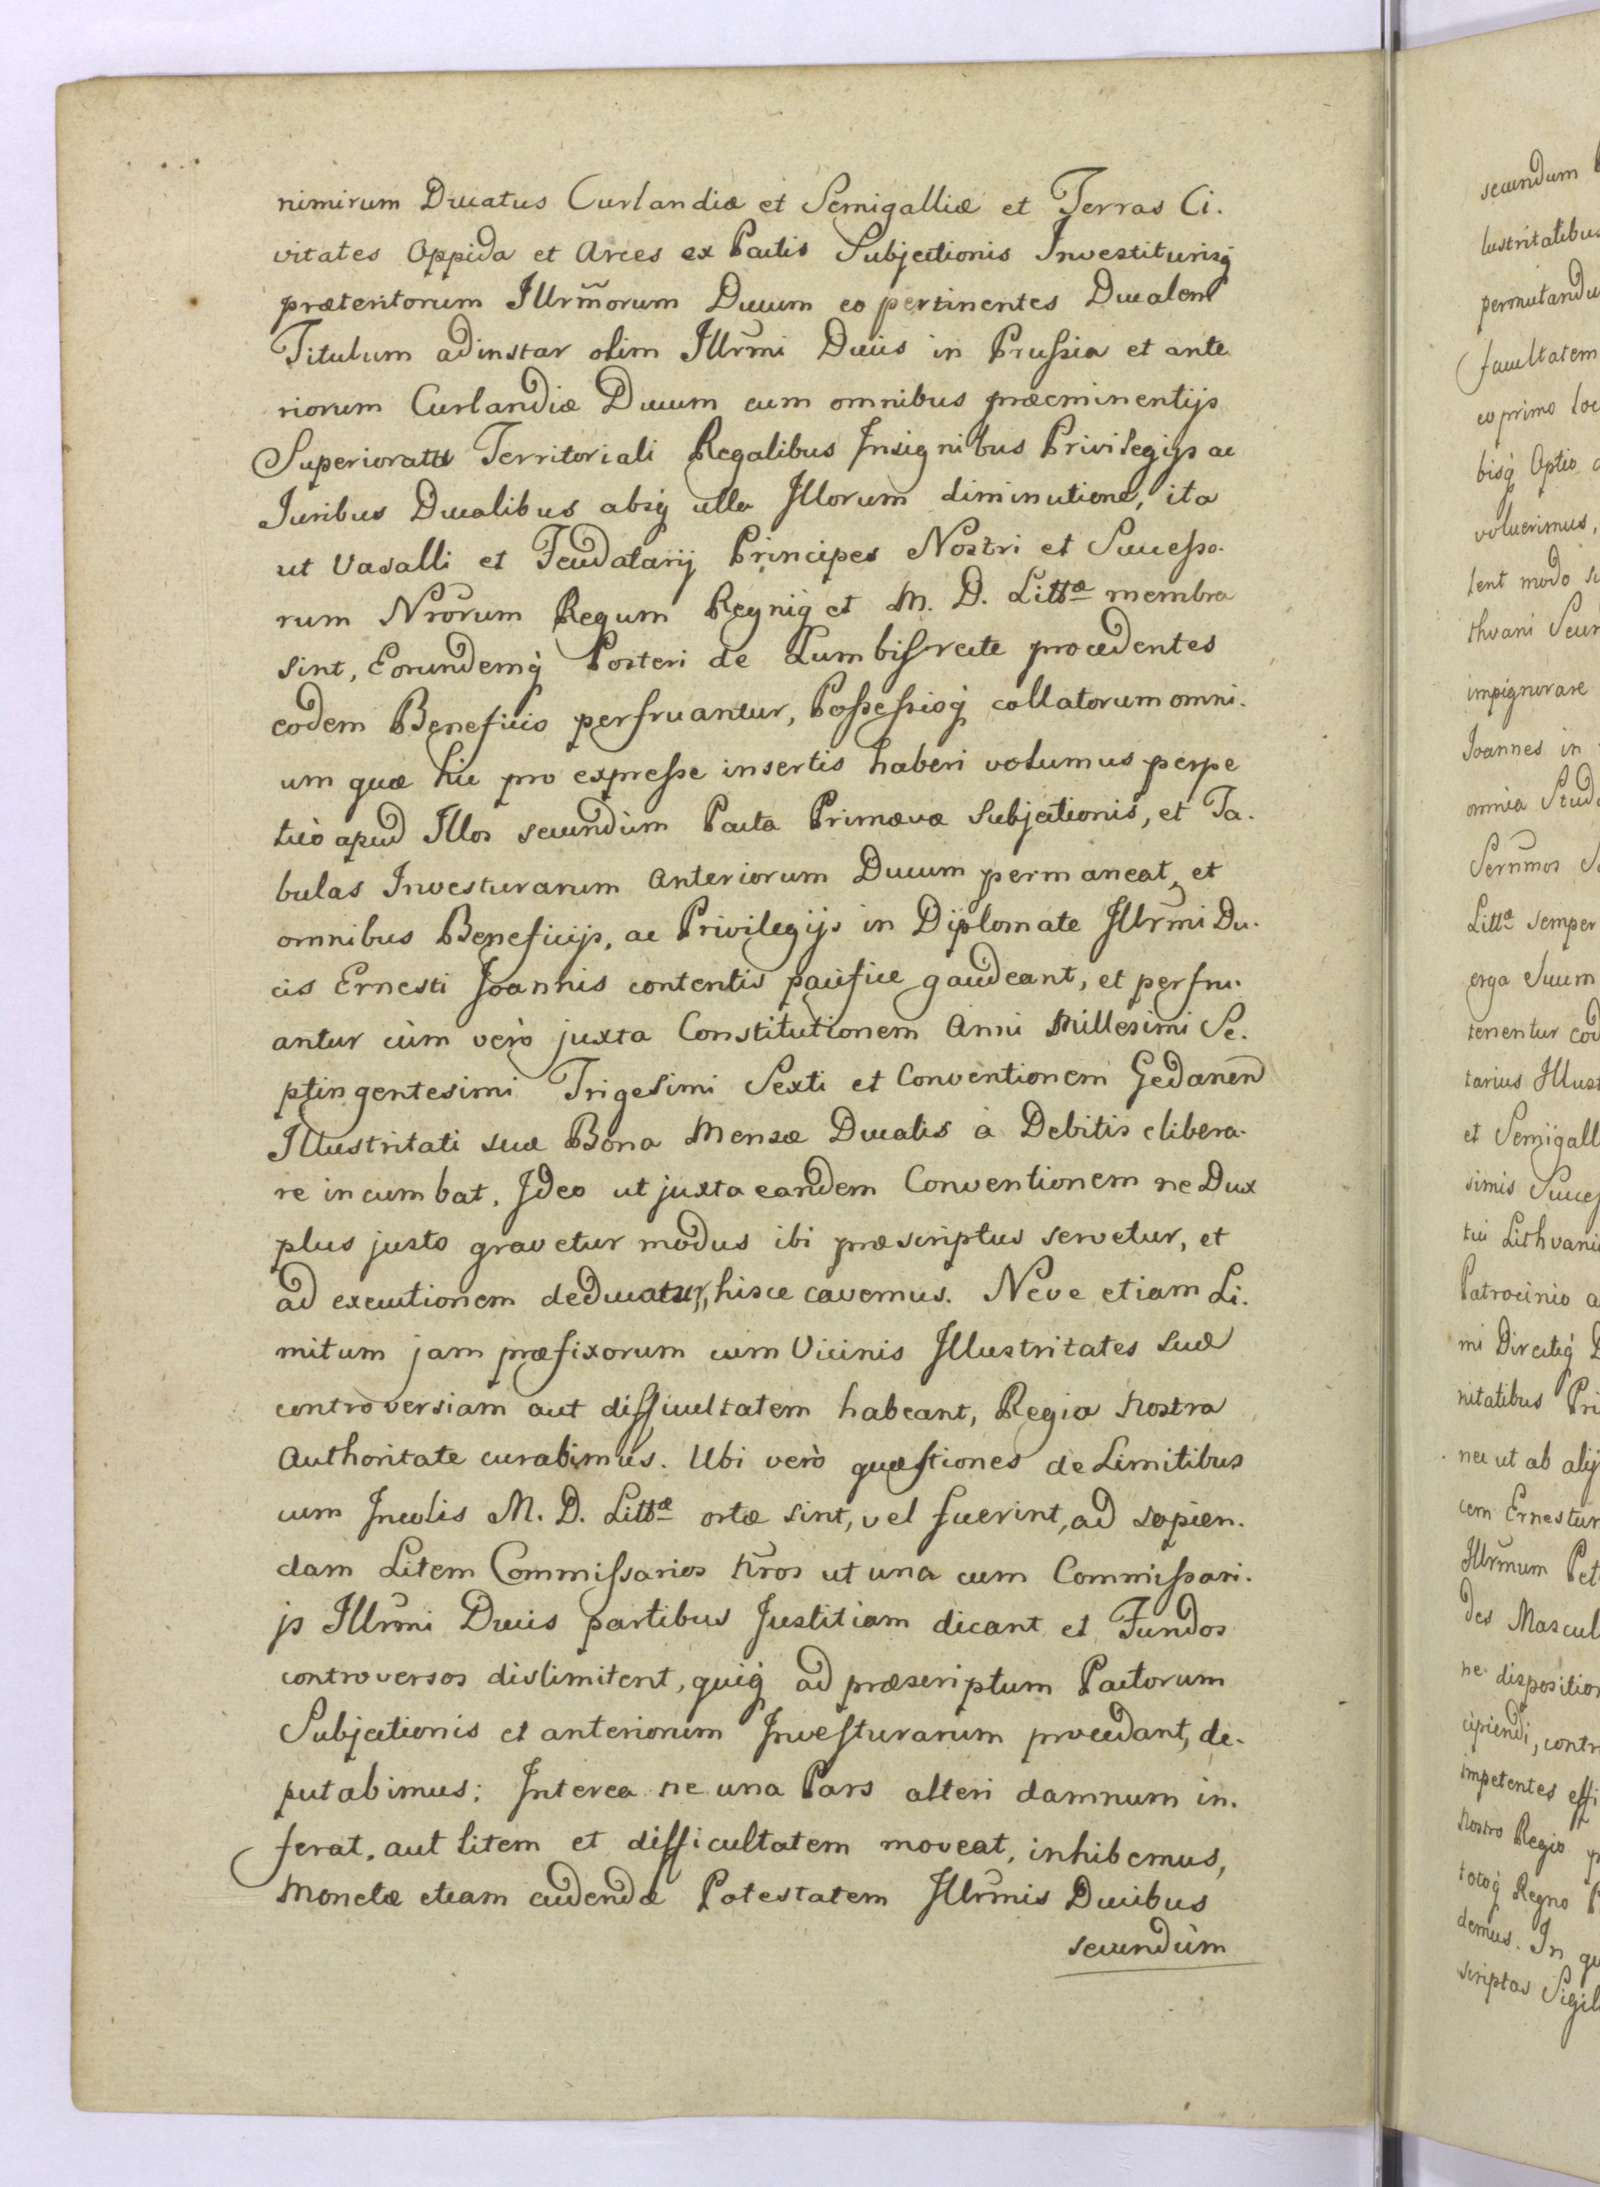 nimirum Ducatus Curlandiæ et Semigalliæ et Terras Ci.
vitates Oppida et Arces ex Pactis Subjectionis Investiturisq́
præteritorum Illrm̃orum Ducum eo pertinentes Ducalem
Titulum adinstar olim Illr̃mi Ducis in Prussia et ante
riorum Curlandiæ Ducum cum omnibus præeminentijs
Superioratu Territoriali Regalibus Insignibus Privilegijs ac
Juribus Ducalibus absq́ ulla Illorum diminutione, ita
ut Vasalli et Feudatarij Principes Nostri et Successo.
rum Nrõrum Regum Regniq́ et M. D. Littæ membra
sint, Eorundemq́ Posteri de Lumbis recte procedentes
eodem Beneficio perfruantur, Possessioq́ collatorum omni.
um quæ hic pro expresse insertis haberi volumus perpe
tuò apud Illos secundùm Pacta Primævæ Subjectionis, et Ta.
bulas Investurarum Anteriorum Ducum permaneat, et
omnibus Beneficijs, ac Privilegijs in Diplomate Illr̃mi Du.
cis Ernesti Joannis contentis pacifice gaudeant, et perfru.
antur cùm verò juxta Constitutionem Anni Millesimi Se.
ptingentesimi Trigesimi Sexti et Conventionem Gedaneñ
Illustritati suæ Bona Mensæ Ducalis à Debitis elibera.
re incumbat. Ideo ut juxta eandem Conventionem ne Dux
plus justo gravetur modus ibi præscriptus servetur, et
ad executionem deducatur, hisce cavemus. Neve etiam Li.
mitum jam præfixorum cum Vicinis Illustritates Suæ
controversiam aut difficultatem habeant, Regia Nostra
Authoritate curabimus. Ubi verò quæstiones de Limitibus
cum Incolis M. D. Littæ ortæ sint, vel fuerint, ad sopien.
dam Litem Commissarios Nr̃os ut una cum Commissari.
js Illr̃mi Ducis partibus Justitiam dicant et Fundos
controversos dislimitent, quiq́ ad præscriptum Pactorum
Subjectionis et anteriorum Investurarum procedant, de.
putabimus; Interea ne una Pars alteri damnum in.
ferat, aut litem et difficultatem moveat, inhibemus,
Monetæ etiam cudendæ Potestatem Illr̃mis Ducibus
secundùm
secundum
lustritatibus
permutandu
facultatem
eo primo loc
bisq́ Optio
voluerimus,
lent modo
thvani
impignorare
Joannes in
omnia Stud
Serñmos
Littæ semper
erga Suum
tenentur
tarius Illust
et Semigall
simis Succes
Lithvani
Patrocinio a
mi Directiq́
nitatibus Pri
nec ut ab alij
cem Ernestum
Illrm̃um Pet
des Mascul
ne disposition
cipiendi, contr
impetentes effi
Nostro Regio
totoq́ Regno
demus. In qu
scriptas Sigil